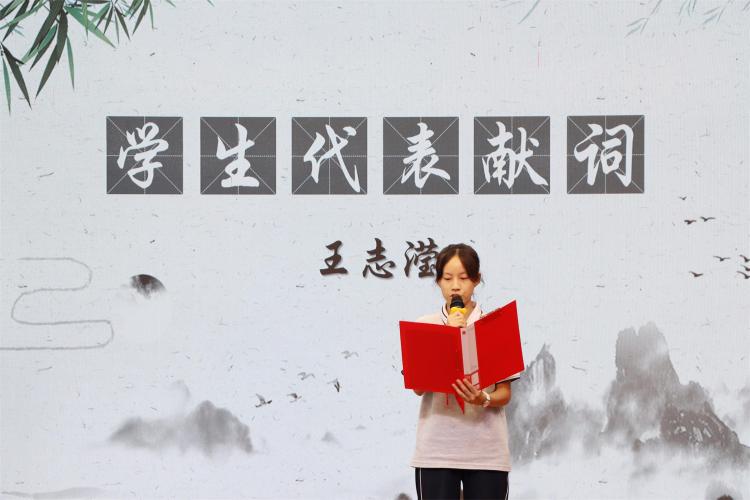 学生代表献词
王志滢